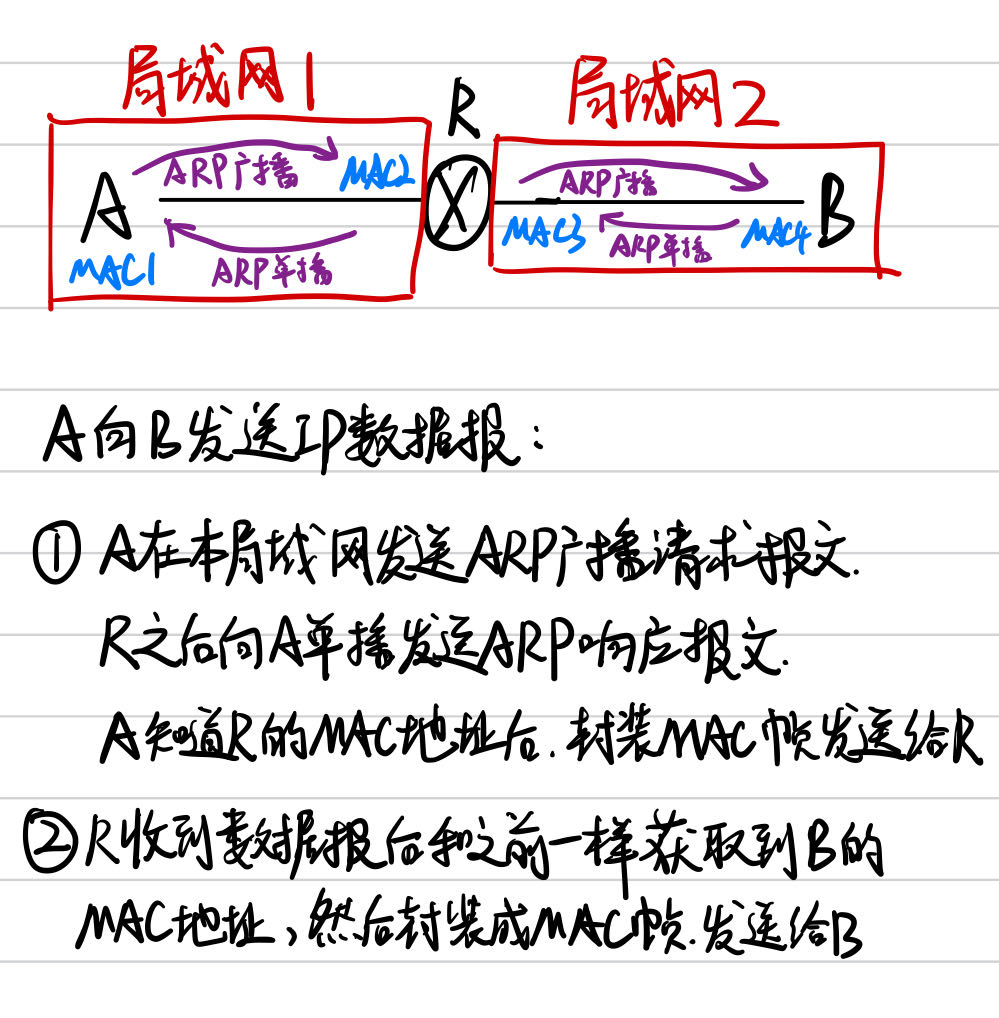 局域网1
R
局域网2
ARP广播
MAC2
ARP广播
A
B
MAC3
MAC4
MAC1
ARP单播
ARP单播
A向B发送IP数据报：
① A在本局域网发送ARP广播请求报文.
R之后向A单播发送ARP响应报文.
A知道R的MAC地址后.封装MAC帧发送给R
②R收到数据报后和之前一样获取到B的
MAC地址,然后封装成MAC帧.发送给B